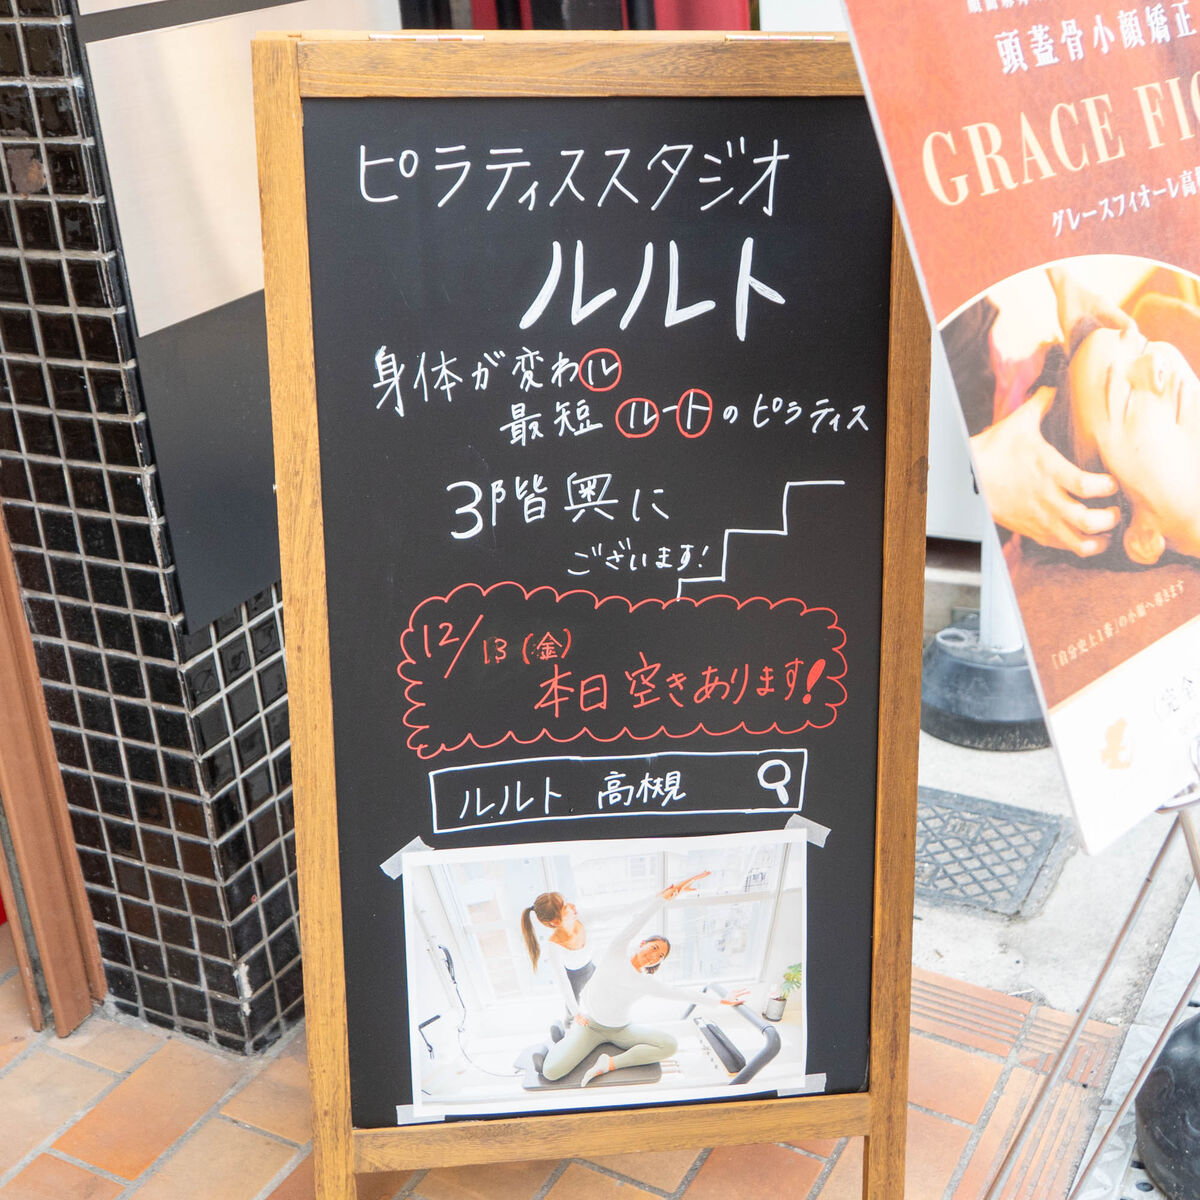 ピラティススタジオ
ルルト
身体が変わル
最短ルートのピラティス
3階奥に
ございます!
12/13(金)
本日空きあります!
ルルト 高槻
頭蓋骨小顔矯正
GRACE FIO
グレースフィオーレ高
「自分史上1番」の小顔へ導きます
完全